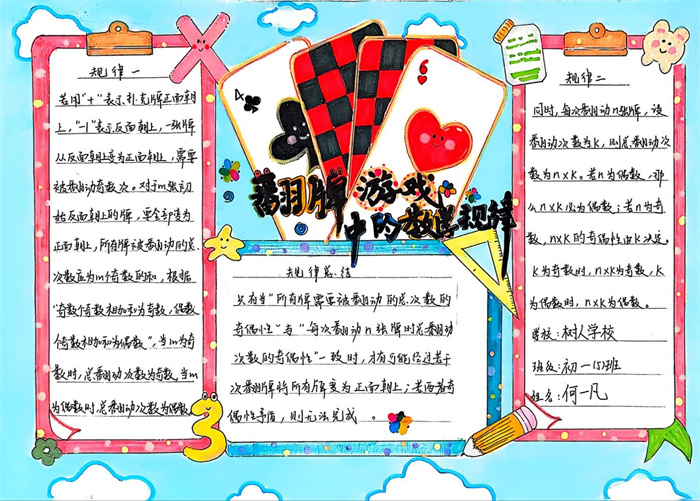 4
6
翻牌游戏
中的数学规律
规律一
若用"+"表示扑克牌正面朝
上,"-"表示反面朝上,一张牌
从反面朝上变为正面朝上,需要
被翻动奇数次。对于m张初
始反面朝上的牌,要全部变为
正面朝上,所有牌被翻动的总
次数应为m个奇数的和,根据
"奇数个奇数相加和为奇数,偶数
个奇数相加和为偶数",当m为奇
数时,总翻动次数为奇数,当m
为偶数时,总翻动次数为偶数
规律总结
只有当"所有牌需要被翻动的总次数的
奇偶性"与"每次翻动n张牌时总翻动
次数的奇偶性"一致时,才有可能经过若干
次翻牌将所有牌变为正面朝上;若两者奇
偶性矛盾,则无法完成。
3
规律二
同时,每次翻动n张牌,设
翻动次数为k,则总翻动次
数为n×k。若n为偶数,那
么n×k必为偶数;若n为奇
数,n×k的奇偶性由k决定。
k为奇数时,n×k为奇数,k
为偶数时,n×k为偶数。
学校:树人学校
班级:初一(5)班
姓名:何一凡